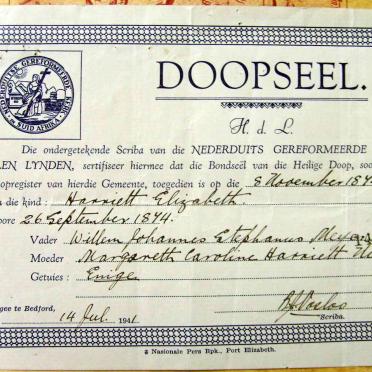 NEDERDUITSE GEREFORMEERDE KERK
SUID AFRIKA
DOOPSEEL.
H. d. L.
Die ondergetekende Scriba van die NEDERDUITS GEREFORMEERDE
EN LYNDEN, sertifiseer hiermee dat die Bondseël van die Heilige Doop, soo
opregister van hierdie Gemeente, toegedien is op die 8 November 189
n die kind : Harriett Elizabeth.
oore 26 September 1894.
Vader Willem Johannes Stephanus Meyer
Moeder Margareth Caroline Harriett
Getuies : Enige
gee te Bedford, 14 Jul. 1941
Scriba.
Nasionale Pers Bpk., Port Elizabeth.